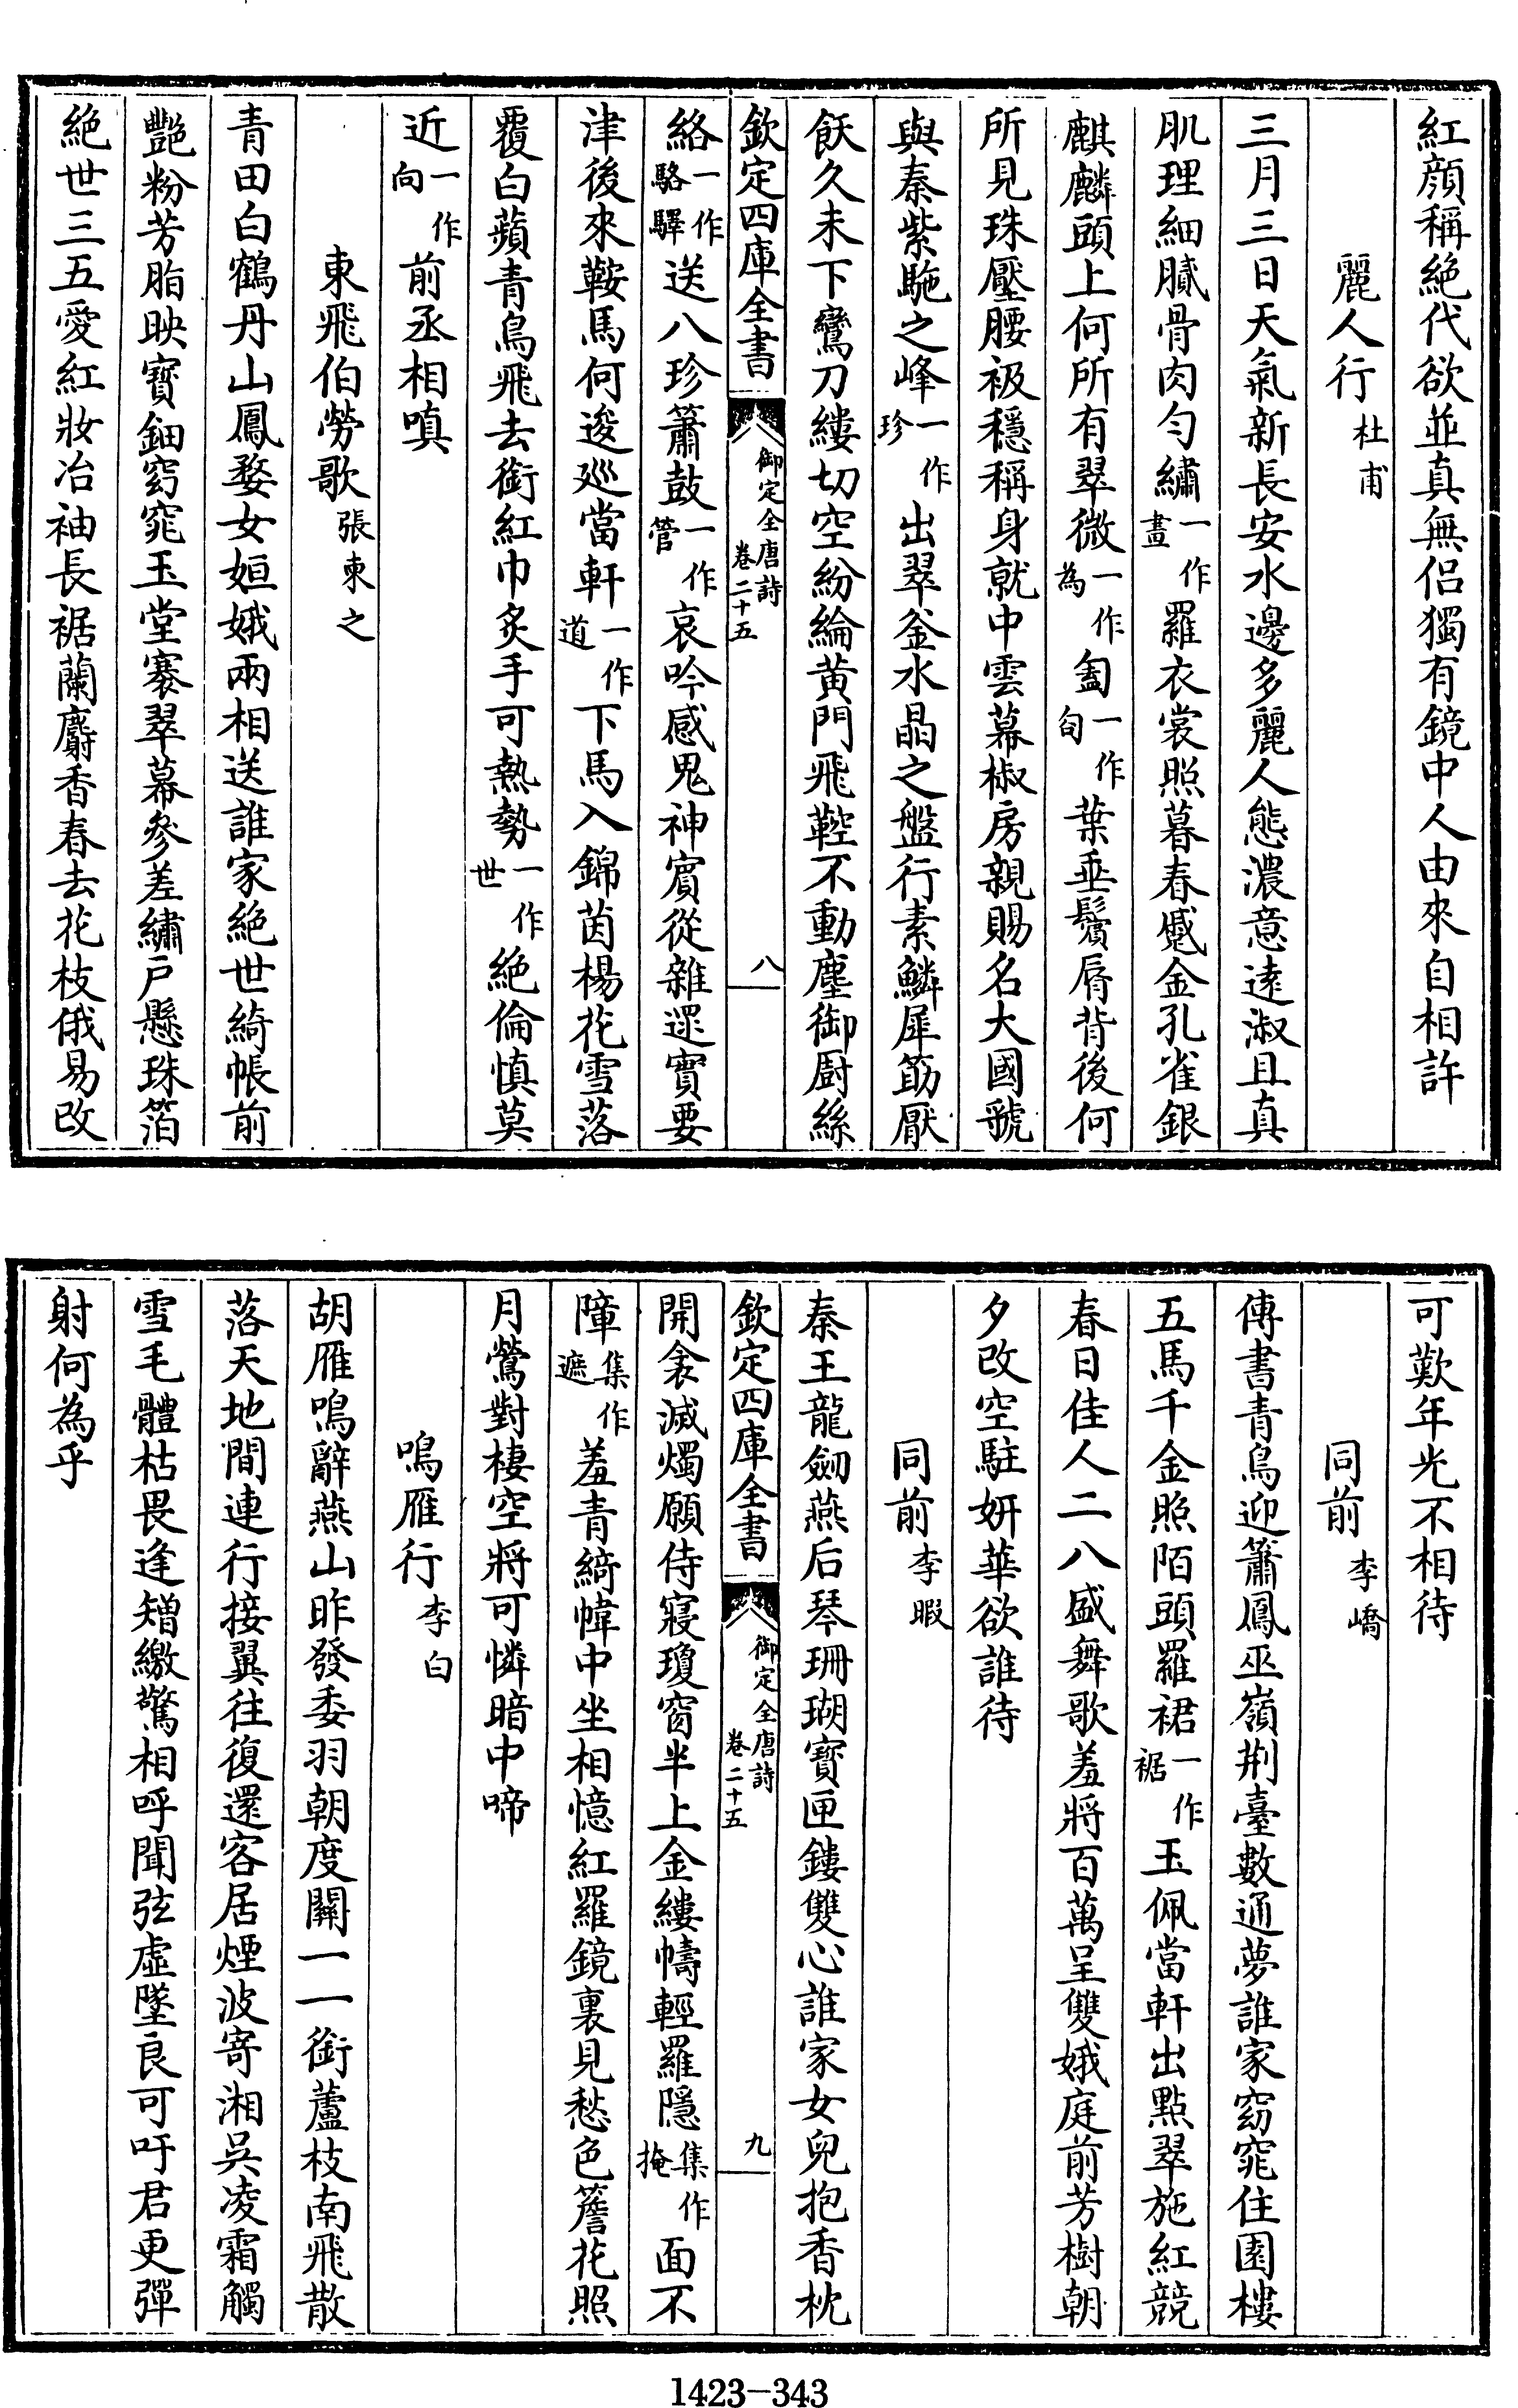 紅顔稱絶代欲並真無侶獨有鏡中人由來自相許
麗人行杜甫
三月三日天氣新長安水邊多麗人態濃意遠淑且真
肌理細膩骨肉勻繡一作畫羅衣裳照暮春蹙金孔雀銀
麒麟頭上何所有翠微一作為㔩一作匌葉垂鬢脣背後何
所見珠壓腰衱穩稱身就中雲幕椒房親賜名大國虢
與秦紫駞之峰一作珍出翠釜水晶之盤行素鱗犀筯厭
飫久未下鸞刀縷切空紛綸黄門飛鞚不動塵御厨絲
欽定四庫全書 御定全唐詩 卷二十五 八
絡一作駱驛送八珍簫鼓一作管哀吟感鬼神賓從雜遝實要
津後來鞍馬何逡廵當軒一作道下馬入錦茵楊花雪落
覆白蘋青鳥飛去銜紅巾炙手可熱勢一作世絶倫慎莫
近一作向前丞相嗔
東飛伯勞歌張柬之
青田白鶴丹山鳳婺女姮娥兩相送誰家絶世綺帳前
艷粉芳脂映寳鈿窈窕玉堂褰翠幕參差繡戸懸珠箔
絶世三五愛紅妝冶袖長裾蘭麝香春去花枝俄易改
可歎年光不相待
同前李嶠
傳書青鳥迎簫鳳巫嶺荆臺數通夢誰家窈窕住園樓
五馬千金照陌頭羅裙一作裾玉佩當軒出點翠施紅競
春日佳人二八盛舞歌羞將百萬呈雙娥庭前芳樹朝
夕改空駐妍華欲誰待
同前李暇
秦王龍劒燕后琴珊瑚寳匣鏤雙心誰家女兒抱香枕
欽定四庫全書 御定全唐詩 卷二十五 九
開衾滅燭願侍寢瓊窗半上金縷幬輕羅隱集作掩面不
障集作遮羞青綺幃中坐相憶紅羅鏡裏見愁色簷花照
月鶯對棲空將可憐暗中啼
鳴雁行李白
胡雁鳴辭燕山昨發委羽朝度關一一銜蘆枝南飛散
落天地間連行接翼往復還客居煙波寄湘吳凌霜觸
雪毛體枯畏逢矰繳驚相呼聞弦虚墜良可吁君更彈
射何為乎
1423-343